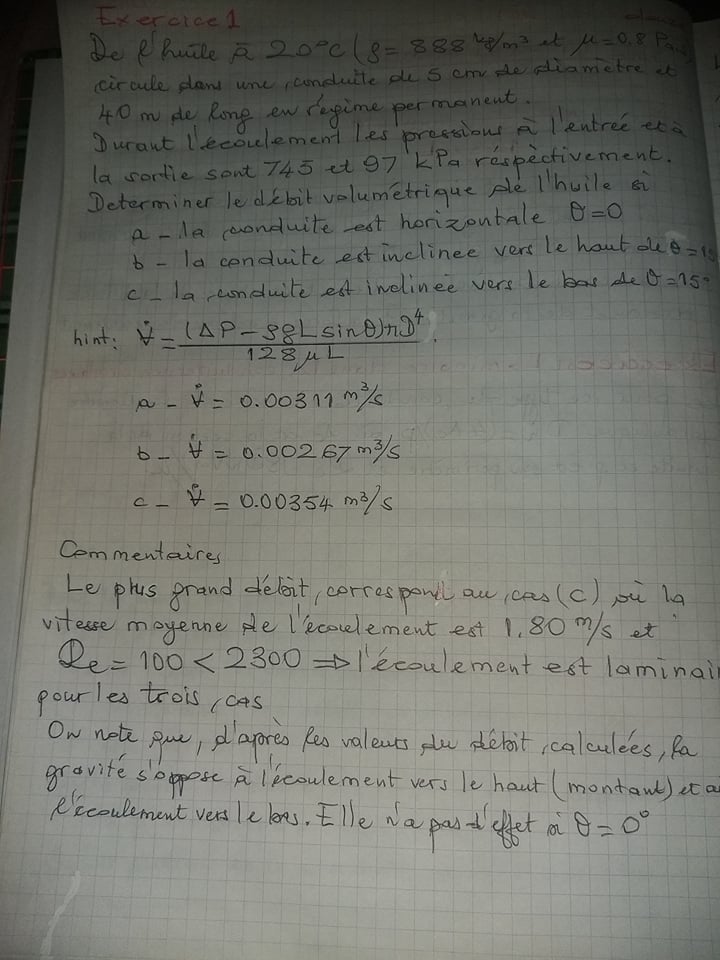 Exercice 1
De l'huile à 20°C (ρ = 888 kg/m³ et μ = 0,8 Pa.s)
circule dans une conduite de 5 cm de diamètre et
40 m de long en régime permanent.
Durant l'écoulement les pressions à l'entrée et à
la sortie sont 745 et 97 kPa réspèctivement.
Determiner le débit volumétrique de l'huile si
a - la conduite est horizontale θ = 0
b - la conduite est inclinee vers le haut de θ = 15
c - la conduite est inclineé vers le bas de θ = 15°
hint: V̇ = (ΔP - ρgL sinθ)πD⁴ / 128 μL .
a - V̇ = 0.00311 m³/s
b - V̇ = 0.00267 m³/s
c - V̇ = 0.00354 m³/s
Commentaires
Le plus grand débit, correspond au cas (c) où la
vitesse moyenne de l'écoulement est 1,80 m/s et
Re = 100 < 2300 ⇒ l'écoulement est laminair
pour les trois cas
On note que, d'après les valeurs du débit calculées, la
gravité s'oppose à l'écoulement vers le haut (montant) et a
l'écoulement vers le bas. Elle n'a pas d'effet si θ = 0°